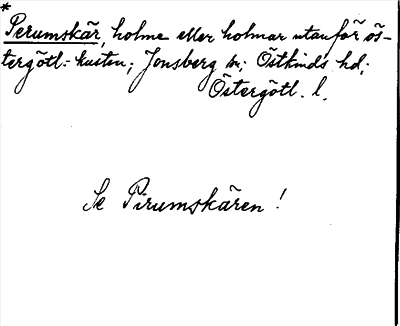 *
Perumskär, holme eller holmar utanför ös-
tergötl.-kusten; Jonsberg sn; Östkinds hd;
Östergötl. l.
Se Pirumskären!